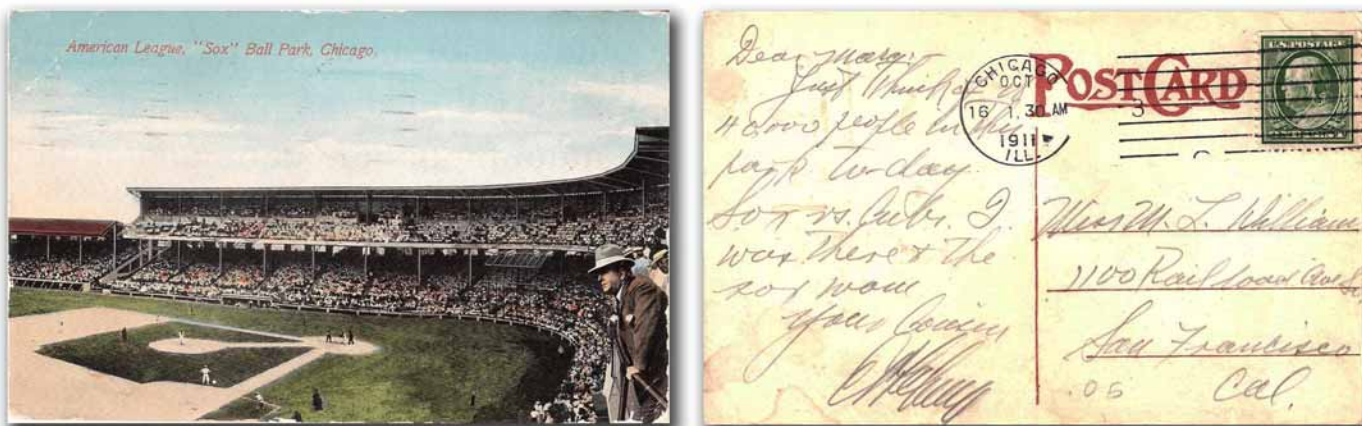 American League, "Sox" Ball Park, Chicago.
Dear Marg:
Just think of it
40000 people in this
park to-day
Sox vs. Cubs. I
was there & the
sox won
Your Cousin
POST CARD
CHICAGO
OCT
16 1.30 AM
1911
ILL.
3
U.S. POSTAGE
Miss M. L. William
1100 Railroad Ave
San Francisco
Cal.